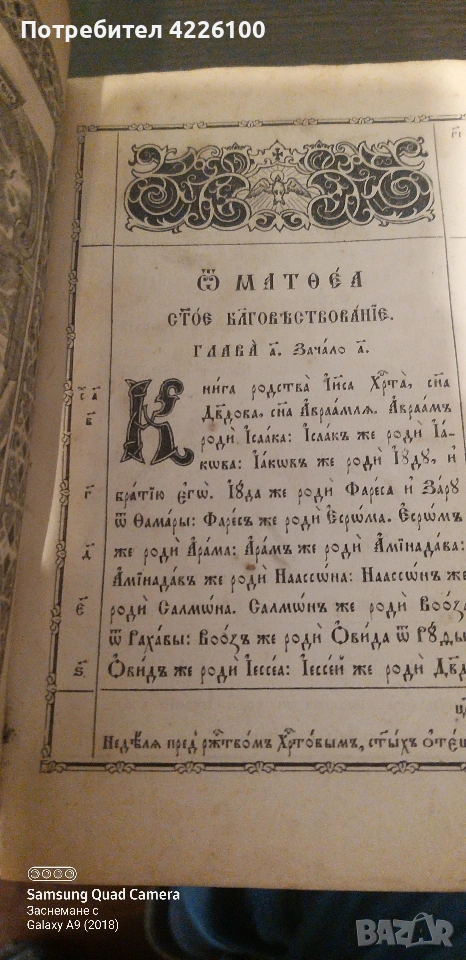 Потребител 4226100
Ѿ МАТѲЕ́А
СТ҃О́Е БЛ҃ГОВѢ́СТВОВАНЇЕ.
ГЛАВА̀ а҃. Зача́ло а҃.
Кни́га родства̀ І҆и҃са Хрⷭ҇та̀, сн҃а
Дв҃дова, сн҃а А҆враа́мля. А҆враа́мъ
родѝ І҆саа́ка: І҆саа́къ же родѝ І҆а́-
кѡва: І҆а́кѡвъ же родѝ І҆ꙋ́дꙋ, и҆
бра́тїю є҆гѡ̀. І҆ꙋ́да же родѝ Фаре́са и҆ За́рꙋ
ѿ Ѳама́ры: Фаре́съ же родѝ Е҆сро́ма. Е҆сро́мъ
же родѝ А҆ра́ма: А҆ра́мъ же родѝ А҆мїнада́ва:
А҆мїнада́въ же родѝ Наассѡ́на: Наассѡ́нъ же
родѝ Салмѡ́на. Салмѡ́нъ же родѝ Воо́за
ѿ Раха́вы: Воо́зъ же родѝ Ѻ҆ви́да ѿ Рꙋ́ды
Ѻ҆ви́дъ же родѝ І҆ессе́а: І҆ессе́й же родѝ Дв҃д
Недѣ́ля пред̾ ржⷭ҇тво́мъ Хрⷭ҇то́вымъ, ст҃ы́хъ ѻ҆те́ц
Samsung Quad Camera
Заснемане с
Galaxy A9 (2018)
BAZAR